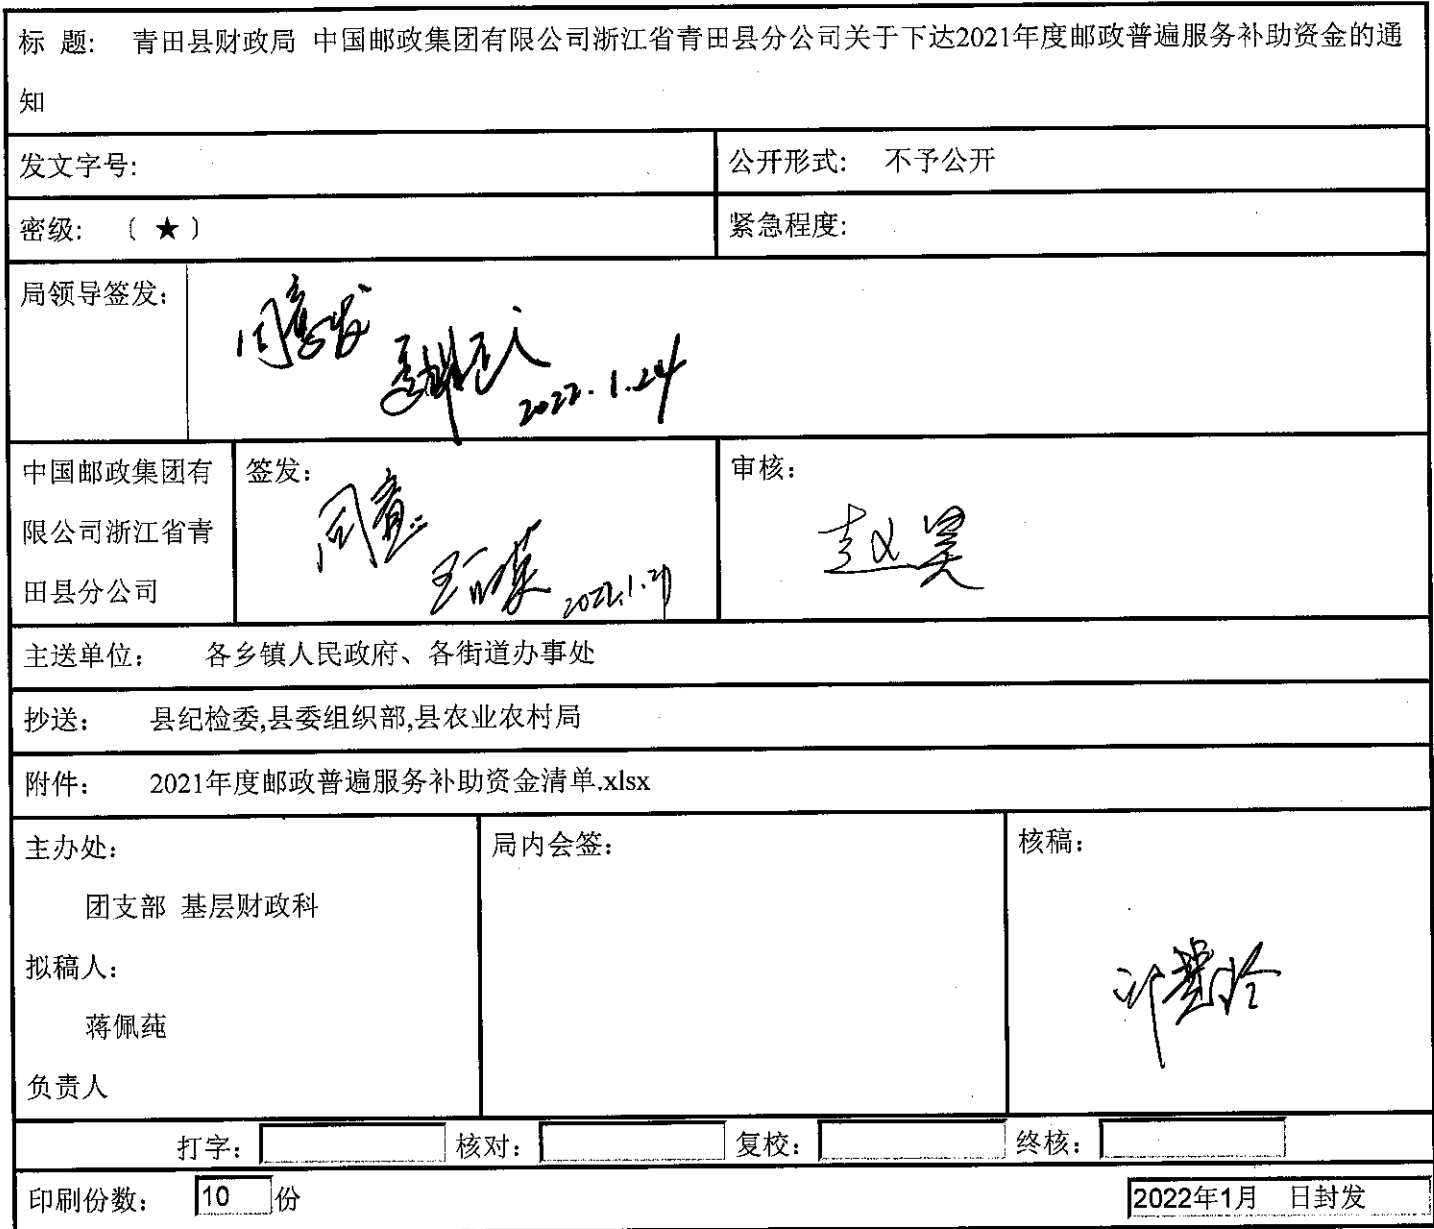 标 题: 青田县财政局 中国邮政集团有限公司浙江省青田县分公司关于下达2021年度邮政普遍服务补助资金的通
知
发文字号:
公开形式: 不予公开
密级: 〔 ★ 〕
紧急程度:
局领导签发:
2022.1.24
中国邮政集团有
限公司浙江省青
田县分公司
签发:
同意
审核:
主送单位: 各乡镇人民政府、各街道办事处
抄送: 县纪检委,县委组织部,县农业农村局
附件: 2021年度邮政普遍服务补助资金清单.xlsx
主办处:
团支部 基层财政科
拟稿人:
蒋佩莼
负责人
局内会签:
核稿:
打字: 核对: 复校: 终核:
印刷份数: 10 份
2022年1月 日封发